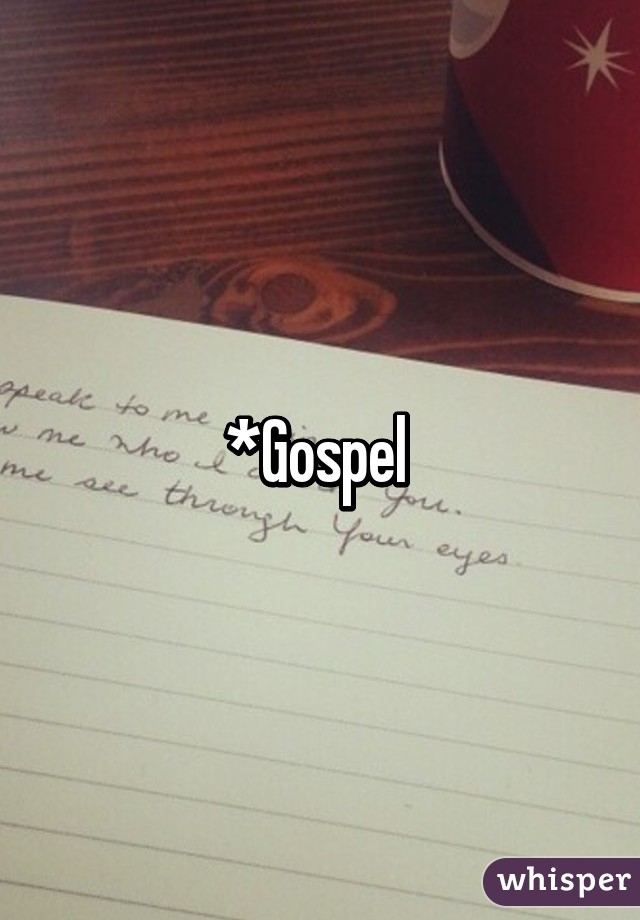 speak to me
me who I you.
me see through Your eyes
*Gospel
whisper